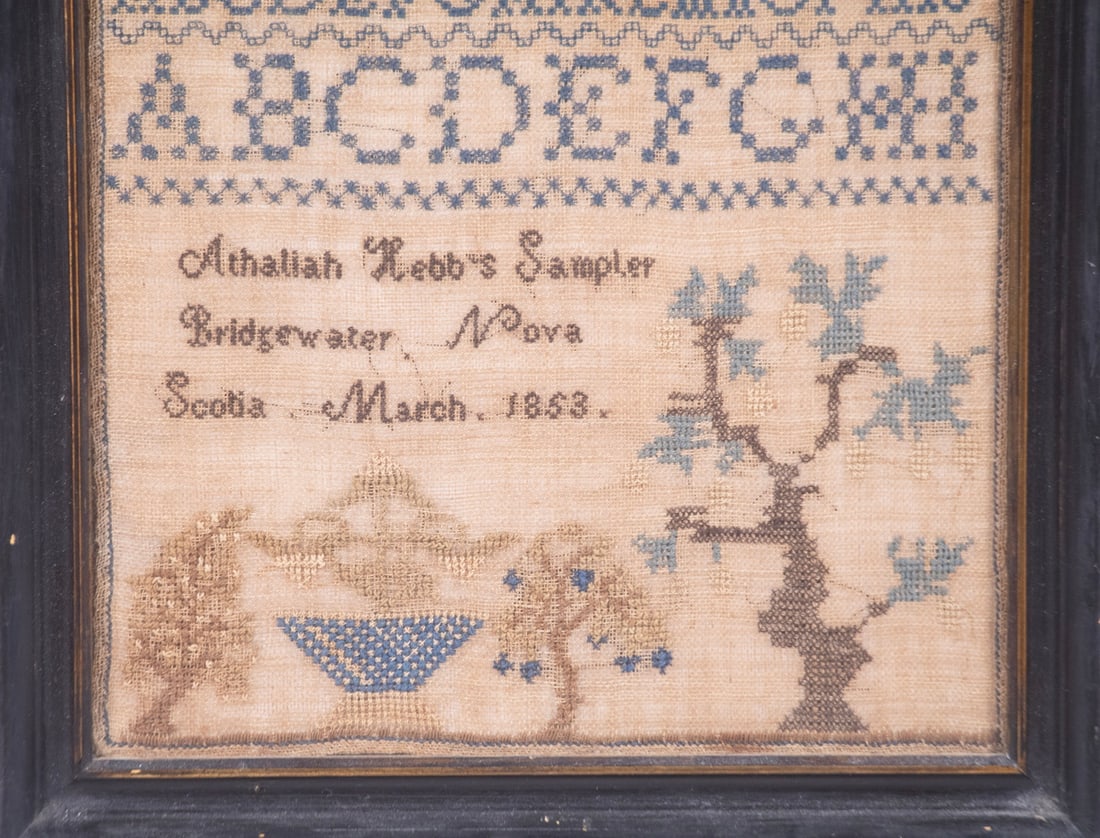 A B C D E F G H I
Athaliah Hebb's Sampler
Bridgewater, Nova
Scotia. March. 1853.